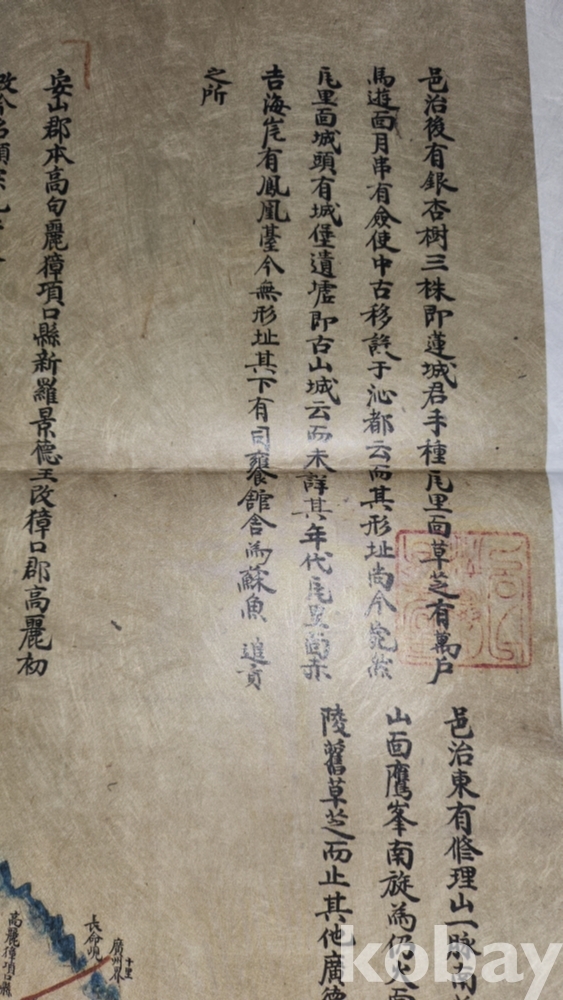 邑治後有銀杏樹三株即蓮城君手種瓦里面草芝有萬戶
馬遊面月串有僉使中古移設于沁都云而其形址尚今宛然
瓦里面城頭有城堡遺墟即古山城云而未詳其年代瓦里面赤
吉海崖有鳳凰臺今無形址其下有司饔舘舍為蘇魚進貢
之所
安山郡本高句麗獐項口縣新羅景德王改獐口郡高麗初
改今名顯宗九年
邑治東有修理山一脉南
山面鷹峯南旋為仍火面
陵舊草芝而止其他廣德
長命峴
廣州界
十里
高麗獐項口縣
kobay